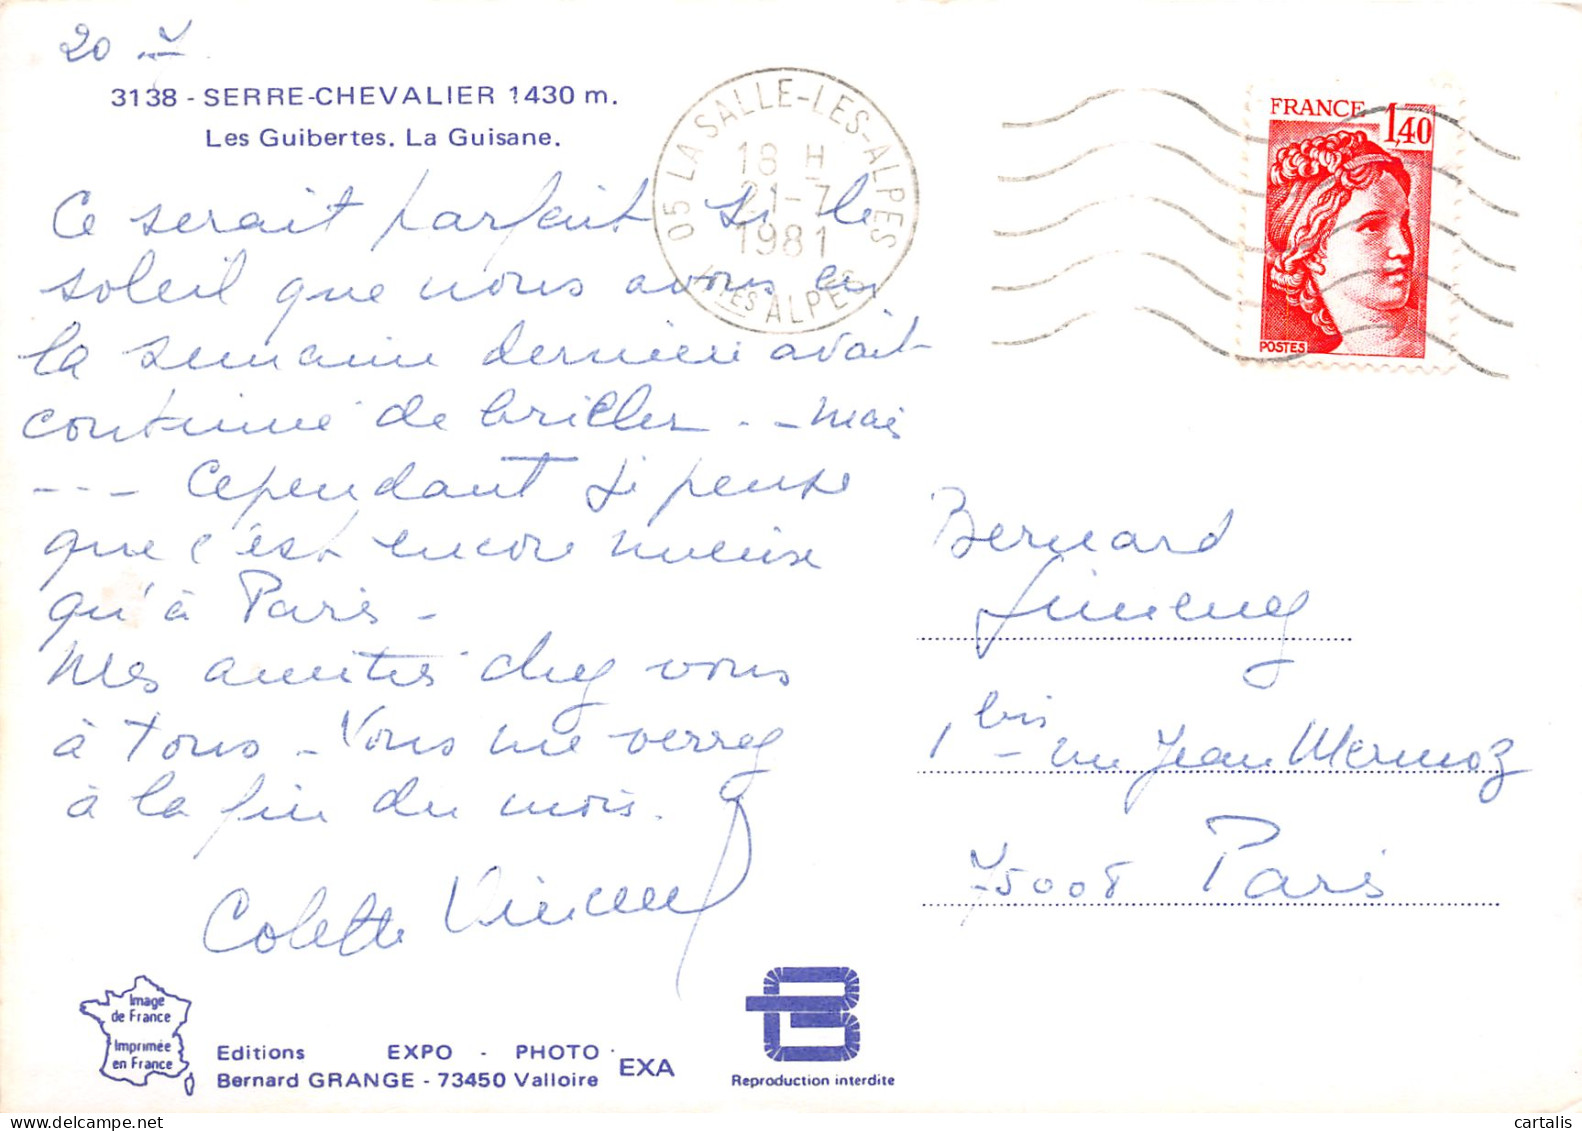 20
3138 - SERRE-CHEVALIER 1430 m.
Les Guibertes. La Guisane.
Ce serait parfait si le
soleil que nous avons eu
la semaine dernière avait
continué de briller . - mais
--- Cependant je pense
que c'est encore mieux
qu'à Paris -
Mes amitiés chez vous
à tous - Vous me verrez
à la fin du mois.
Colette
05 LA SALLE-LES-ALPES
18 H
21-7
1981
HTES ALPES
FRANCE 1,40
POSTES
Bernard
1 bis rue Jean Mermoz
75008 Paris
Image
de France
Imprimée
en France
Editions EXPO - PHOTO
Bernard GRANGE - 73450 Valloire
EXA
Reproduction interdite
cartalis